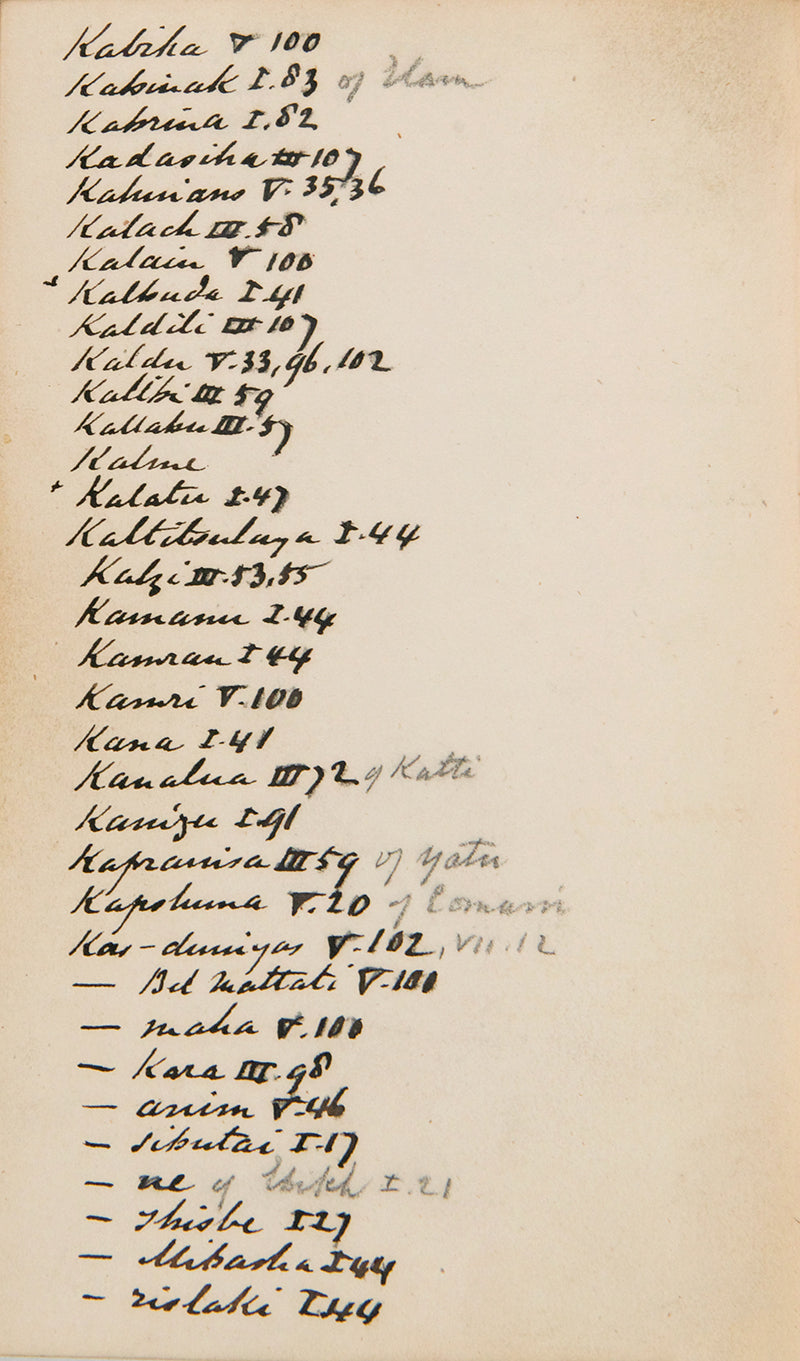 Kabiha V 100
Kabinak I.83 of Elam
Kabrina I.82
Kadasiha III 107
Kahirians V.35,36
Kalach III.58
Kalain V 100
Kalbuda I.41
Kaldili III 107
Kaldu V.33,96,102
Kalibi III 59
Kallabu III.57
Kalme
+ Kalatu I.47
Kaltitsulaya I.44
Kalzi III.53,55
Kamanu I.44
Kamran I 44
Kamri V.100
Kana I.41
Kanalua III 72 of Katti
Kanizu I.91
Kapranisa III 59 of Yatu
Kapshuna V.20 of Comani
Kas-duniyas V.102, VII.12
— Bel Mattati V.100
— maha V.100
— Kara III.98
— anim V.46
— sibutai I.17
— ne of I.21
— Thisbe I 27
— Mibasha I 44
— rislaki I.44